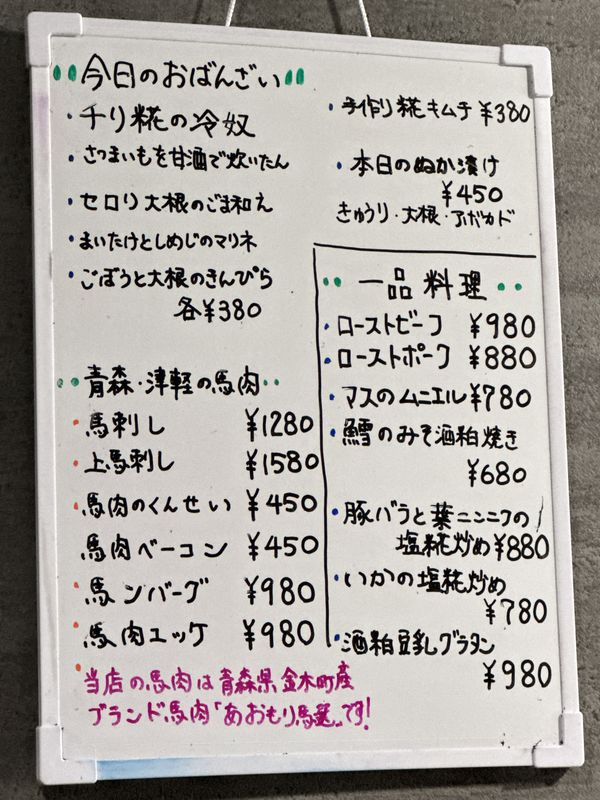 今日のおばんざい
・チリ糀の冷奴
・さつまいもを甘酒で炊いたん
・セロリ大根のごま和え
・まいたけとしめじのマリネ
・ごぼうと大根のきんぴら
各¥380
・手作り糀キムチ ¥380
・本日のぬか漬け
¥450
きゅうり・大根・アボカド
青森・津軽の馬肉
・馬刺し ¥1280
・上馬刺し ¥1580
・馬肉のくんせい ¥450
馬肉ベーコン ¥450
・馬ンバーグ ¥980
・馬肉ユッケ ¥980
・当店の馬肉は青森県金木町産
ブランド馬肉「あおもり馬 」です!
一品料理
・ローストビーフ ¥980
・ローストポーク ¥880
・マスのムニエル ¥780
・鱈のみそ酒粕焼き
¥680
・豚バラと葉ニンニクの
塩糀炒め ¥880
・いかの塩糀炒め
¥780
・酒粕豆乳グラタン
¥980